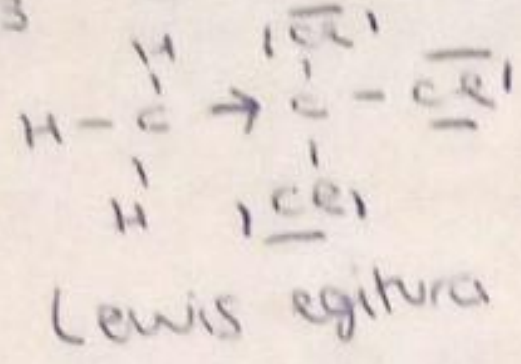 3
H |Cl|
H – C → C – Cl|
H |Cl|
Lewis egitura